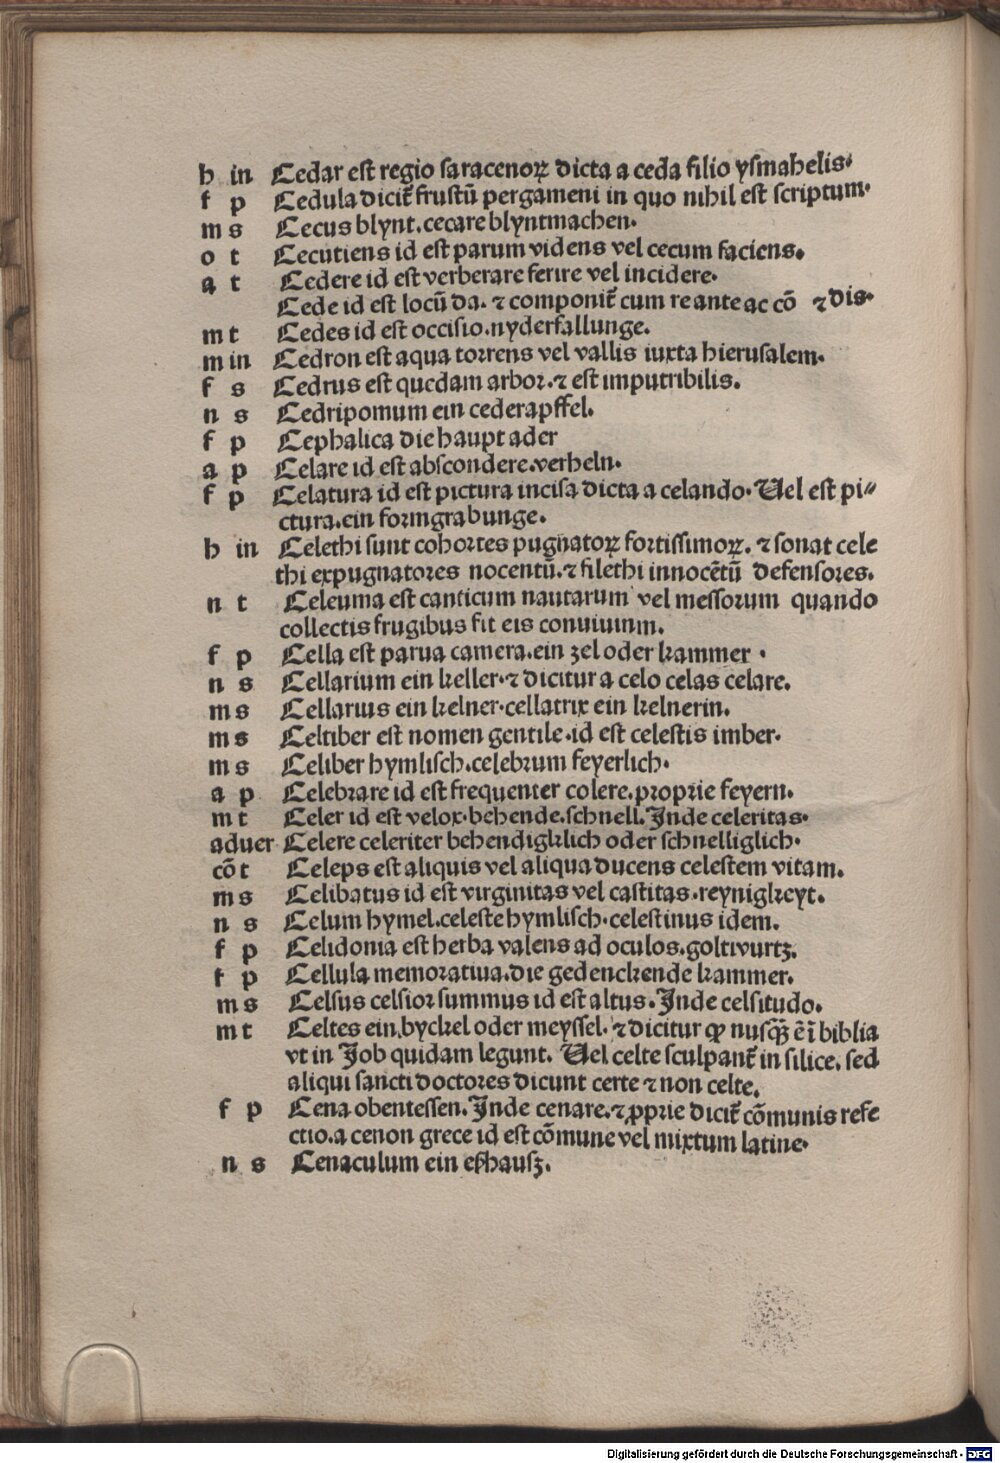 h in Cedar est regio saracenoꝝ dicta a ceda filio ysmahelis.
f p Cedula dicit᷑ frustū pergameni in quo nihil est scriptum.
m s Cecus blynt. cecare blyntmachen.
o t Cecutiens id est parum videns vel cecum faciens.
a t Cedere id est verberare ferire vel incidere.
Cede id est locū da. ⁊ componit᷑ cum re ante ac cō ⁊ dis.
m t Cedes id est occisio. nyderfallunge.
m in Cedron est aqua torrens vel vallis iuxta hierusalem.
f s Cedrus est quedam arbor. ⁊ est imputribilis.
n s Cedripomum ein cederapffel.
f p Cephalica die haupt ader
a p Celare id est abscondere. verheln.
f p Celatura id est pictura incisa dicta a celando. Uel est pi⸗
ctura. ein formgrabunge.
h in Celethi sunt cohortes pugnatoꝝ fortissimoꝝ. ⁊ sonat cele
thi expugnatores nocentū. ⁊ filethi innocētū defensores.
n t Celeuma est canticum nautarum vel messorum quando
collectis frugibus fit eis conuiuium.
f p Cella est parua camera. ein zel oder kammer .
n s Cellarium ein keller. ⁊ dicitur a celo celas celare.
m s Cellarius ein kelner. cellatrix ein kelnerin.
m s Celtiber est nomen gentile. id est celestis imber.
m s Celiber hymlisch. celebrum feyerlich.
a p Celebrare id est frequenter colere. proprie feyern.
m t Celer id est velox. behende. schnell. Inde celeritas.
aduer Celere celeriter behendigklich oder schnelliglich.
cō t Celeps est aliquis vel aliqua ducens celestem vitam.
m s Celibatus id est virginitas vel castitas. reynigkeyt.
n s Celum hymel. celeste hymlisch. celestinus idem.
f p Celidonia est herba valens ad oculos. goltwurtz.
f p Cellula memoratiua. die gedenckende kammer.
m s Celsus celsior summus id est altus. Inde celsitudo.
m t Celtes ein byckel oder meyssel. ⁊ dicitur ꝙ nusꝗ̃ ē ī biblia
vt in Job quidam legunt. Uel celte sculpant᷑ in silice. sed
aliqui sancti doctores dicunt certe ⁊ non celte.
f p Cena obentessen. Inde cenare. ⁊ ꝓprie dicit᷑ cōmunis refe
ctio. a cenon grece id est cōmune vel mixtum latine.
n s Cenaculum ein eßhausz.
Digitalisierung gefördert durch die Deutsche Forschungsgemeinschaft - DFG